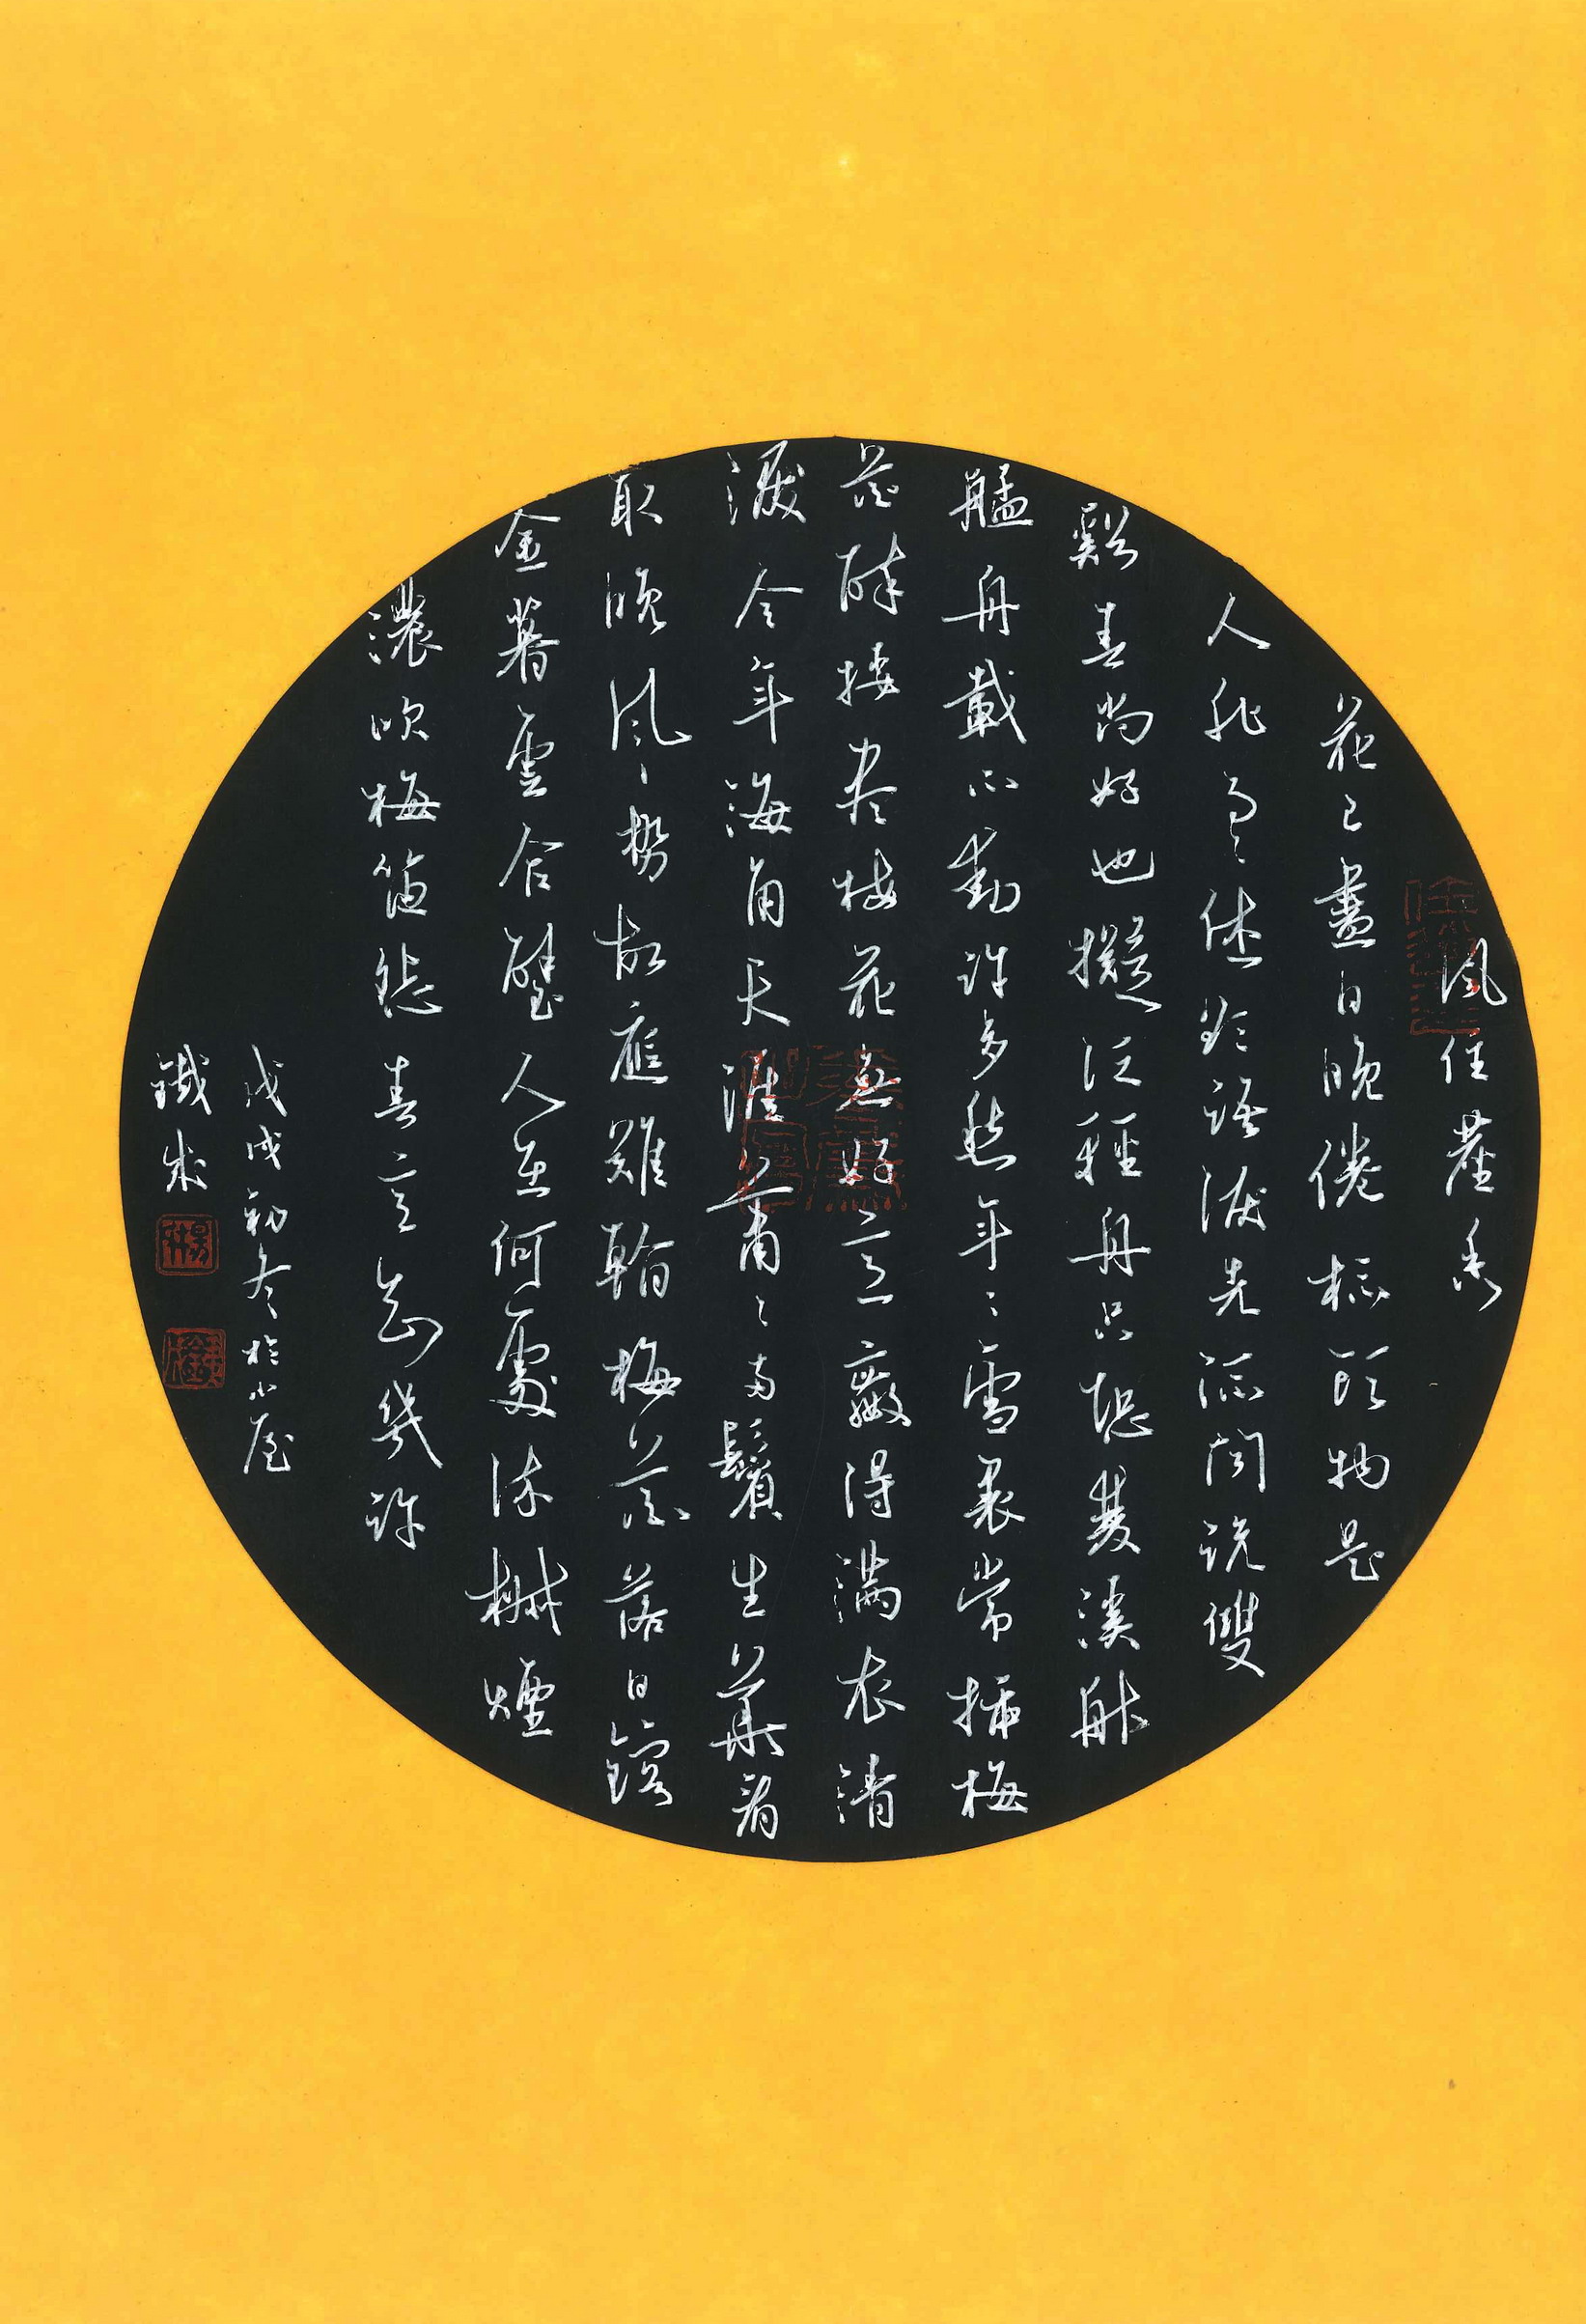 風住塵香
花已盡日晚倦梳頭物是
人非事々休欲語淚先流聞說雙
谿春尚好也擬泛輕舟只恐雙溪舴
艋舟載不動許多愁年々雪裏常插梅
花醉挼盡梅花無好意贏得滿衣清
淚今年海角天涯蕭々兩鬢生華看
取晚風々勢故應難看梅花落日鎔
金暮雲合璧人在何處染柳煙
濃吹梅笛怨春意知幾許
戊戌初冬於小屋
鐵